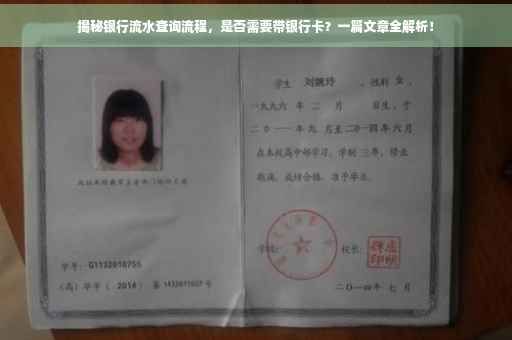 揭秘银行流水查询流程，是否需要带银行卡？一篇文章全解析！
学生 刘婉玲 ，性别 女 ，
一九九六 年 二 月 日生，于
二〇一一 年 九 月至 二〇一四 年 六 月
在本校高中部学习，学制 三 年，修业
期满，成绩合格，准予毕业。
学号： G1132010755
学校：
校长：
（高）毕字（ 2014 ）第 1432011027 号
二〇一四年 七 月